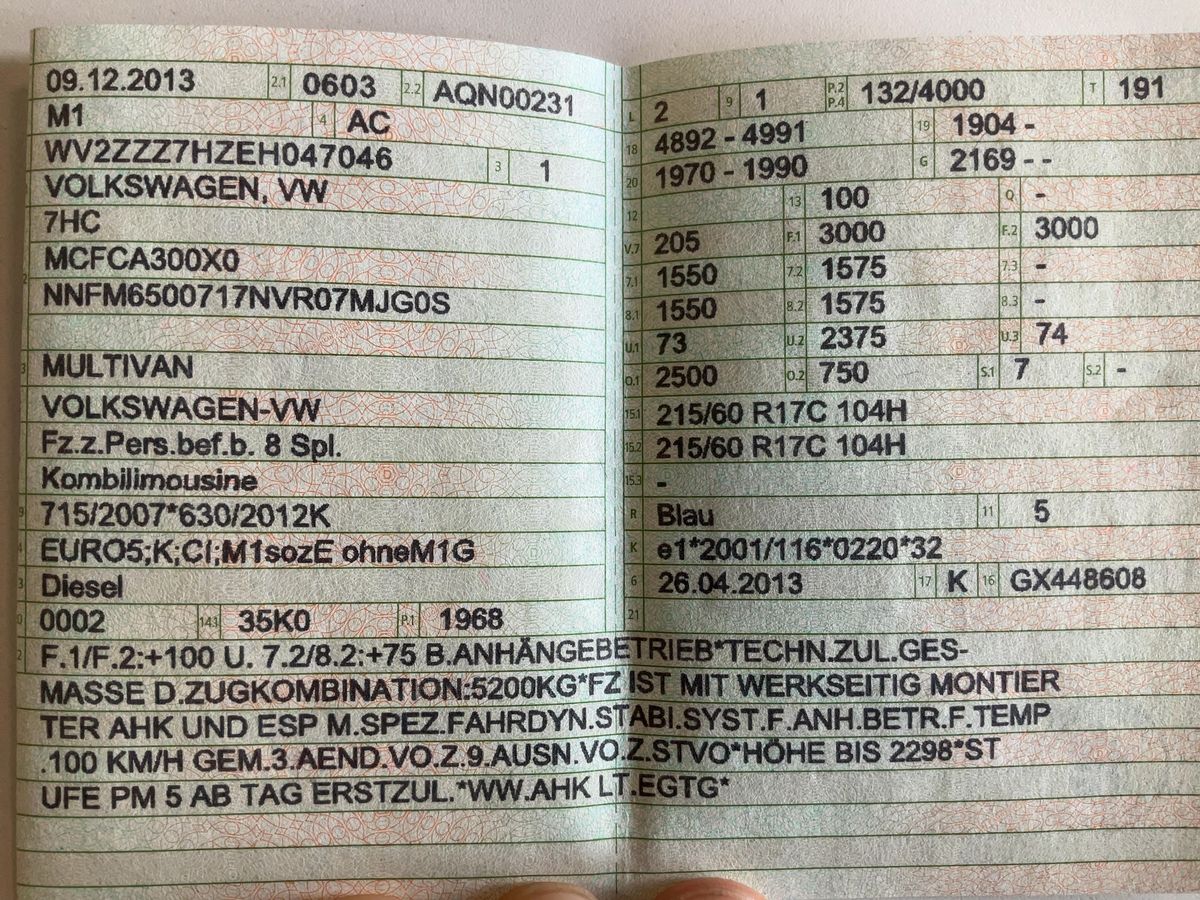 09.12.2013 2.1 0603 2.2 AQN00231
M1 4 AC
WV2ZZZ7HZEH047046 3 1
VOLKSWAGEN, VW
7HC
MCFCA300X0
NNFM6500717NVR07MJG0S
MULTIVAN
VOLKSWAGEN-VW
Fz.z.Pers.bef.b. 8 Spl.
Kombilimousine
715/2007*630/2012K
EURO5;K;CI;M1sozE ohneM1G
Diesel
0002 14.1 35K0 P.1 1968
L 2 9 1 P.2 P.4 132/4000 T 191
18 4892 - 4991 19 1904 -
20 1970 - 1990 G 2169 - -
12 13 100 Q -
V.7 205 F.1 3000 F.2 3000
7.1 1550 7.2 1575 7.3 -
8.1 1550 8.2 1575 8.3 -
U.1 73 U.2 2375 U.3 74
O.1 2500 O.2 750 S.1 7 S.2 -
15.1 215/60 R17C 104H
15.2 215/60 R17C 104H
15.3 -
R Blau 11 5
K e1*2001/116*0220*32
6 26.04.2013 17 K 16 GX448608
21
F.1/F.2:+100 U. 7.2/8.2:+75 B.ANHÄNGEBETRIEB*TECHN.ZUL.GES-
MASSE D.ZUGKOMBINATION:5200KG*FZ IST MIT WERKSEITIG MONTIER
TER AHK UND ESP M.SPEZ.FAHRDYN.STABI.SYST.F.ANH.BETR.F.TEMP
.100 KM/H GEM.3.AEND.VO.Z.9.AUSN.VO.Z.STVO*HÖHE BIS 2298*ST
UFE PM 5 AB TAG ERSTZUL.*WW.AHK LT.EGTG*